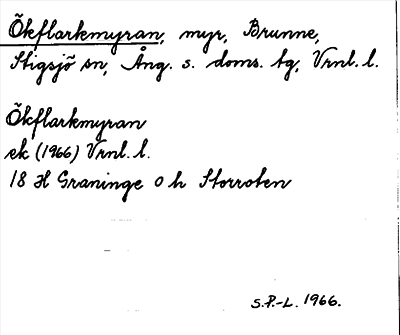 Ökflarkmyran, myr, Brunne,
Stigsjö sn, Ång. s. doms. tg, Vrnl. l.
Ökflarkmyran
ek (1966) Vrnl. l.
18 H Graninge 0 h Storroten
S.P.-L. 1966.